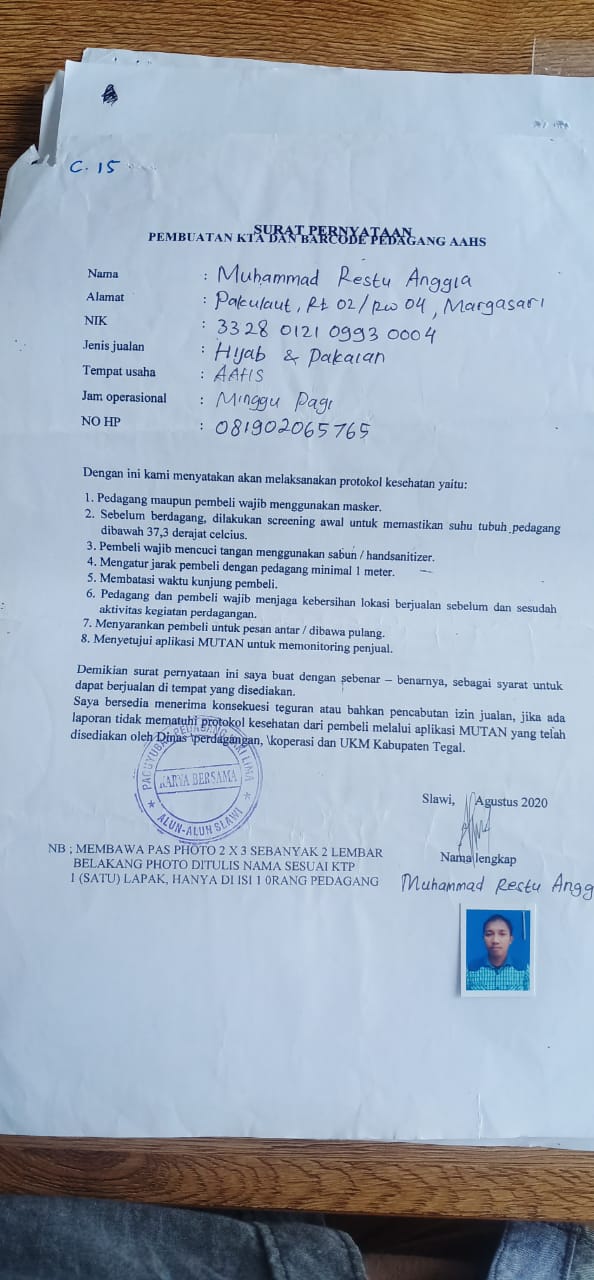 C. 15
SURAT PERNYATAAN
PEMBUATAN KTA DAN BARCODE PEDAGANG AAHS
Nama : Muhammad Restu Anggia
Alamat : Pakulaut, Rt 02/RW 04, Margasari
NIK : 3328 0121 0993 0004
Jenis jualan : Hijab & Pakaian
Tempat usaha : AAHS
Jam operasional : Minggu Pagi
NO HP : 081902065765
Dengan ini kami menyatakan akan melaksanakan protokol kesehatan yaitu:
1. Pedagang maupun pembeli wajib menggunakan masker.
2. Sebelum berdagang, dilakukan screening awal untuk memastikan suhu tubuh pedagang
dibawah 37,3 derajat celcius.
3. Pembeli wajib mencuci tangan menggunakan sabun / handsanitizer.
4. Mengatur jarak pembeli dengan pedagang minimal 1 meter.
5. Membatasi waktu kunjung pembeli.
6. Pedagang dan pembeli wajib menjaga kebersihan lokasi berjualan sebelum dan sesudah
aktivitas kegiatan perdagangan.
7. Menyarankan pembeli untuk pesan antar / dibawa pulang.
8. Menyetujui aplikasi MUTAN untuk memonitoring penjual.
Demikian surat pernyataan ini saya buat dengan sebenar – benarnya, sebagai syarat untuk
dapat berjualan di tempat yang disediakan.
Saya bersedia menerima konsekuesi teguran atau bahkan pencabutan izin jualan, jika ada
laporan tidak mematuhi protokol kesehatan dari pembeli melalui aplikasi MUTAN yang telah
disediakan oleh Dinas \perdagangan, \koperasi dan UKM Kabupaten Tegal.
PAGUYUBAN PEDAGANG KAKI LIMA
KARYA BERSAMA
★ ALUN-ALUN SLAWI ★
Slawi, Agustus 2020
Nama lengkap
Muhammad Restu Angg
NB ; MEMBAWA PAS PHOTO 2 X 3 SEBANYAK 2 LEMBAR
BELAKANG PHOTO DITULIS NAMA SESUAI KTP
1 (SATU) LAPAK, HANYA DI ISI 1 0RANG PEDAGANG